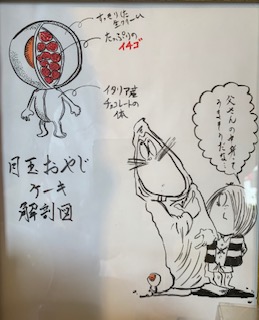 すっきりした
生クリーム
たっぷりの
イチゴ
イタリア産
チョコレートの
体
目玉おやじ
ケーキ
解剖図
父さんの中身って
うまそうだな。